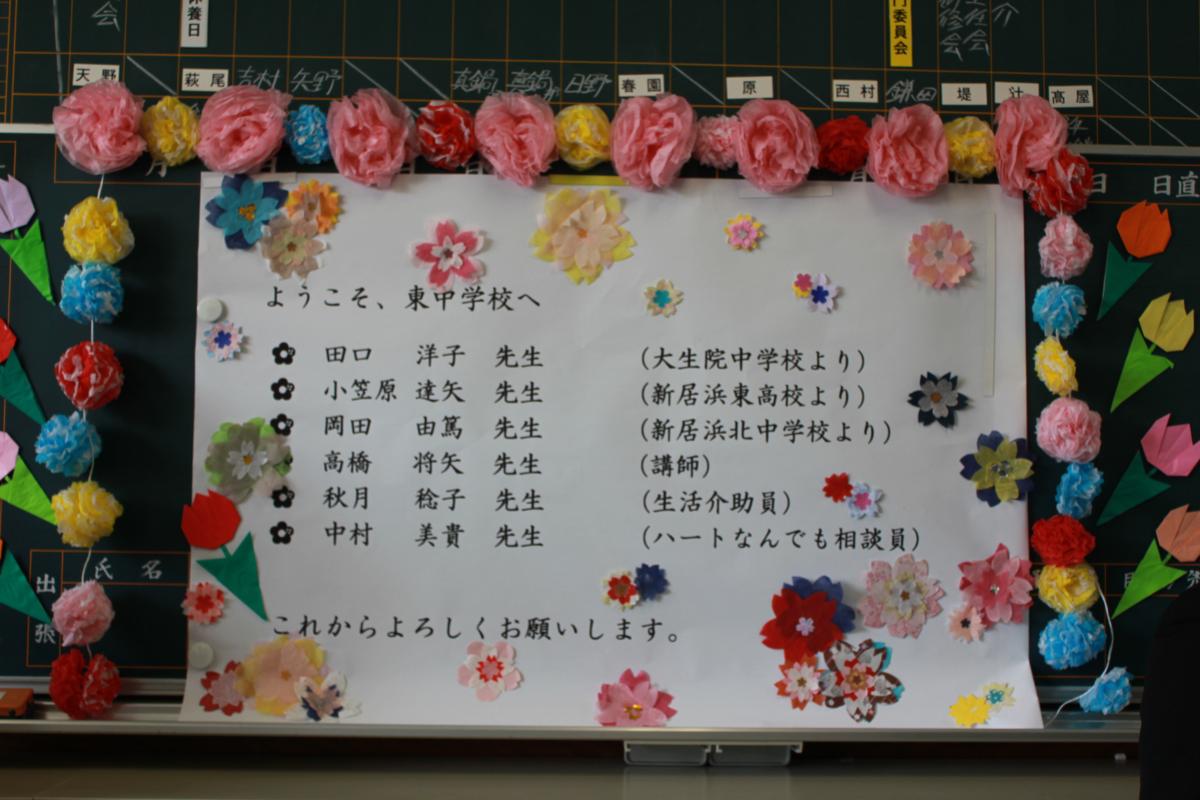 会
休養日
門委員会
介
天野 萩尾 吉村 矢野 真鍋 真鍋 日野 春園 原 西村 鎌田 堤 辻 髙屋
月
日
日直
ようこそ、東中学校へ
田口 洋子 先生 (大生院中学校より)
小笠原 達矢 先生 (新居浜東高校より)
岡田 由篤 先生 (新居浜北中学校より)
高橋 将矢 先生 (講師)
秋月 稔子 先生 (生活介助員)
中村 美貴 先生 (ハートなんでも相談員)
これからよろしくお願いします。
氏名
出張